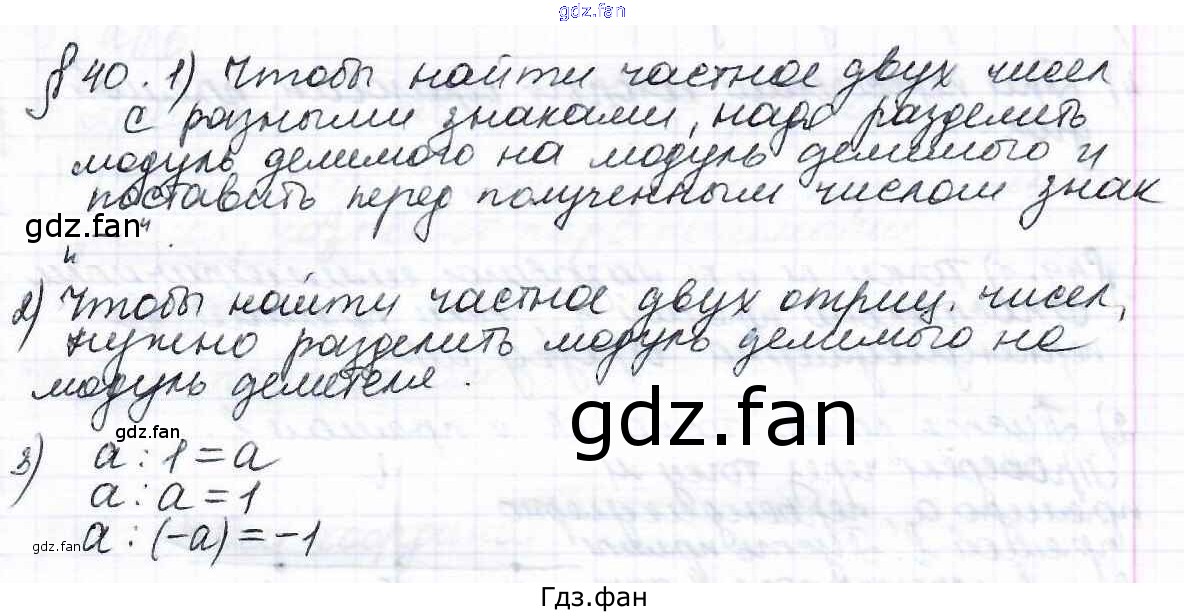 gdz.fan
§ 40. 1) Чтобы найти частное двух чисел
с разными знаками, надо разделить
модуль делимого на модуль делимого и
поставить перед полученным числом знак
gdz.fan
"–".
2) Чтобы найти частное двух отриц. чисел,
нужно разделить модуль делимого на
модуль делителя.
gdz.fan
gdz.fan
3) a : 1 = a
a : a = 1
gdz.fan a : (-a) = -1
Гдз.фан